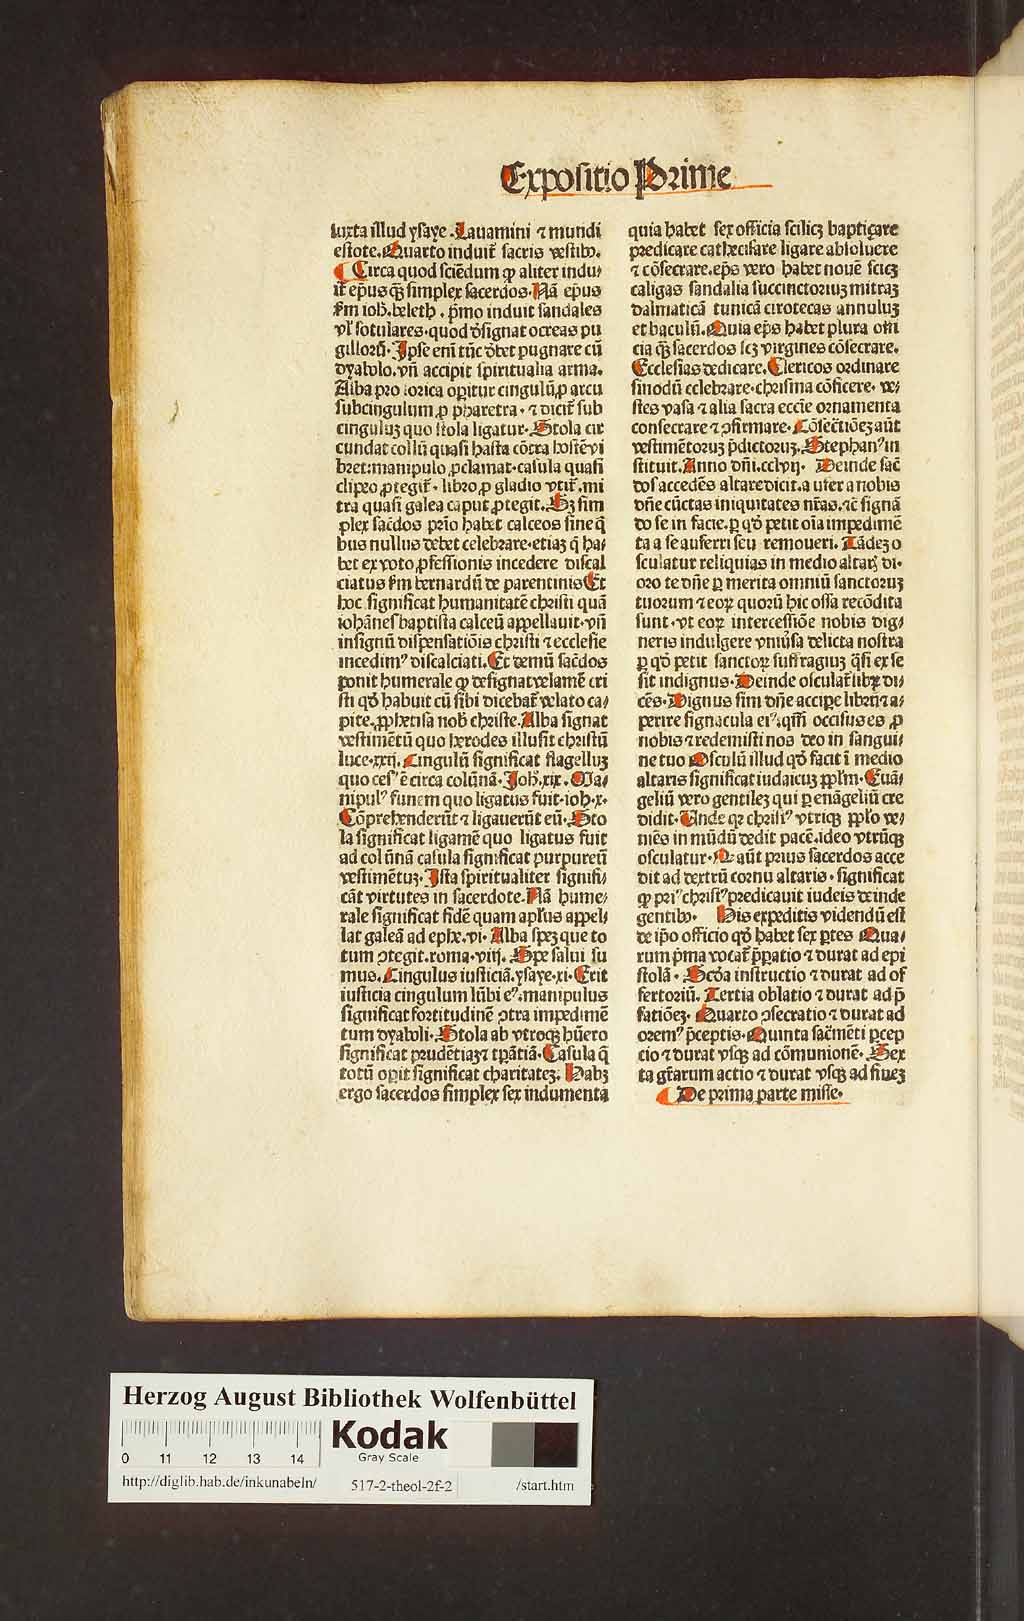 Expositio Prime
iuxta illud ysaye. Lauamini ⁊ mundi
estote. Quarto induit̃ sacris vestibꝰ.
Circa quod sciẽdum ꝙ aliter indu⸗
it̃ ep̃us qꝫ simplex sacerdos. Nã ep̃us
ẜm ioh̃. beleth. p̃mo induit sandales
vl̃ sotulares. quod ꝺ̃signat ocreas pu
gillorũ. Ipse eni tũc ꝺ̃bet pugnare cũ
dyabolo. vñ accipit spiritualia arma.
Alba pro lorica operitur cingulũ ꝓ arcu
subcingulum ꝓ pharetra. ⁊ dicit̃ sub
cinguluꝫ quo stola ligatur. Stola cir
cundat collũ quasi hasta cõtra hostẽ vi
bret: manipulo ꝓ clamat. casula quasi
clipeo ꝓtegit̃. libro ꝓ gladio vtit̃. mi
tra quasi galea caput ꝓtegit. Sꝫ sim
plex sac̃dos prĩo habet calceos sine q̃
bus nullus debet celebrare. etiaꝫ q̃ ha⸗
bet ex voto ꝓfessionis incedere discal
ciatus ẜm bernardũ de parentinis Et
hoc significat humanitatẽ christi quã
iohãnes baptista calceũ appellauit. vñ
insignũ dispensatiõis christi ⁊ ecclesie
incedimꝰ discalciati. Et demũ sac̃dos
ponit humerale qꝫ designat velamẽ cri
sti qđ habuit cũ sibi dicebat̃ velato ca⸗
pite. ꝓphetisa nob̃ christe. Alba signat
vestimẽtũ quo herodes illusit christũ
luce. xxij. Cingulũ significat flagelluꝫ
quo cesꝰ ẽ circa colũnã. Joh̃. xix. Ma⸗
nipulꝰ funem quo ligatus fuit. ioh̃. x.
Cõprehenderũt ⁊ ligauerũt eũ. Sto
la significat ligamẽ quo ligatus fuit
ad colũnã casula significat purpureũ
vestimẽtuꝫ. Ista spiritualiter signifi⸗
cãt virtutes in sacerdote. Nã hume⸗
rale significat fidẽ quam apl̃us appel⸗
lat galeã ad ephe. vi. Alba speꝫ que to
tum ꝯtegit. roma. viij. Spe salui su
mus. Cingulus iusticiã. ysaye. xi. Erit
iusticia cingulum lũbi eꝰ. manipulus
significat fortitudinẽ ꝯtra impedimẽ
tum dyaboli. Stola ab vtroqꝫ hũero
significat prudẽtiaꝫ ⁊ tp̃ãtiã. Casula q̃
totũ operit significat charitateꝫ. Habꝫ
ergo sacerdos simplex sex indumenta
quia habet sex officia scilicꝫ baptiçare
predicare cathecisare ligare absoluere
⁊ cõsecrare. ep̃s vero habet nouẽ scicꝫ
caligas sandalia succinctoriuꝫ mitraꝫ
dalmaticã tunicã cirotecas annuluꝫ
et baculũ. Quia ep̃s habet plura offi
cia qꝫ sacerdos scꝫ virgines cõsecrare.
Ecclesias dedicare. Clericos ordinare
sinodũ celebrare. chrisma cõficere. ve⸗
stes vasa ⁊ alia sacra eccĩe ornamenta
consecrare ⁊ ꝯfirmare. Cõsectiões aũt
vestimẽtoruꝫ p̃dictoruꝫ. Stephanꝰ in
stituit. Anno dñi. cclvij. Deinde sac̃
dos accedẽs altare dicit. aufer a nobis
dñe cũctas iniquitates nr̃as. ⁊c̃ signã
do se in facie. ꝑ qđ petit oĩa impedimẽ
ta a se auferri seu remoueri. Tãdeꝫ o
sculatur reliquias in medio altarꝫ di⸗
oro te dñe ꝑ merita omniũ sanctoruꝫ
tuorum ⁊ eoꝝ quorũ hic ossa recõdita
sunt. vt eoꝝ intercessiõe nobis dig⸗
neris indulgere vniũsa delicta nostra
ꝑ qđ petit sanctoꝝ suffragiuꝫ q̃si ex se
sit indignus. Deinde osculat̃ librꝫ di⸗
cẽs. Dignus sim dñe accipe librũ ⁊ a⸗
perire signacula eiꝰ. qm̃ occisus es ꝓ
nobis ⁊ redemisti nos deo in sangui⸗
ne tuo Osculũ illud qđ facit ĩ medio
altaris significat iudaicuꝫ ppl̃m. Euã⸗
geliũ vero gentileꝫ qui ꝑ euãgeliũ cre
didit. Unde qꝛ christꝰ vtriqꝫ ppl̃o ve⸗
niẽs in mũdũ dedit pacẽ. ideo vtrũqꝫ
osculatur. Q aũt prius sacerdos acce
dit ad dextrũ cornu altaris. significat
ꝙ priꝰ christꝰ predicauit iudeis deinde
gentibꝰ. His expeditis videndũ est
de ip̃o officio qđ habet sex ptes Qua⸗
rum p̃ma vocat̃ p̃patio ⁊ durat ad epi
stolã. Scđa instructio ⁊ durat ad of
fertoriũ. Tertia oblatio ⁊ durat ad p̃
fatiõeꝫ. Quarto ꝯsecratio ⁊ durat ad
oremꝰ p̃ceptis. Quinta sac̃mẽti ꝑcep
cio ⁊ durat vsqꝫ ad cõmunionẽ. Sex
ta gr̃arum actio ⁊ durat vsqꝫ ad fineꝫ
De prima parte misse.
Herzog August Bibliothek Wolfenbüttel
0 11 12 13 14
Kodak
Gray Scale
http://diglib.hab.de/inkunabeln/ 517-2-theol-2f-2 /start.htm